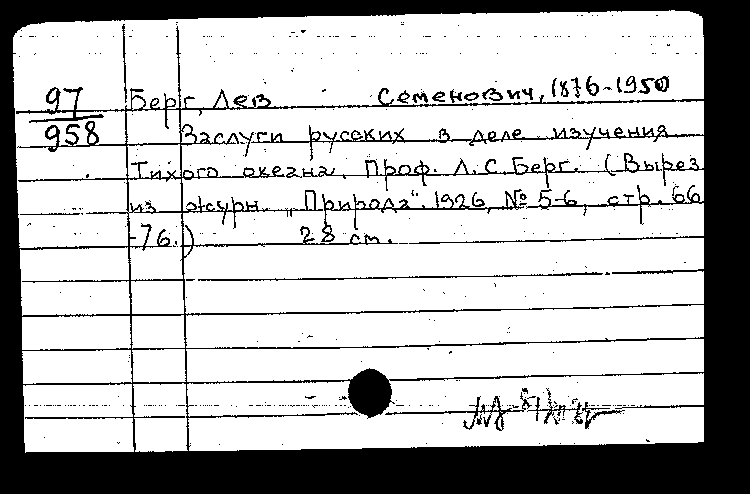 97 Берг, Лев Семенович, 1876-1950
958 Заслуги русских в деле изучения
Тихого океана. Проф. Л.С. Берг. (Вырез
из журн. „Природа“. 1926, № 5-6, стр. 66
-76.) 28 ст.